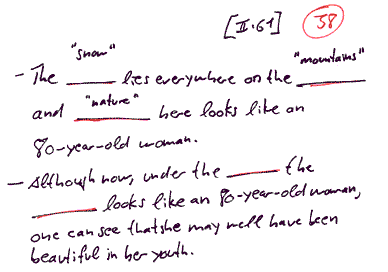 [II.61] 38
"snow" "mountains"
- The ____ lies everywhere on the ____
"nature"
and ____ here looks like an
80-year-old woman.
- Although now, under the ____ the
____ looks like an 80-year-old woman,
one can see that she may well have been
beautiful in her youth.